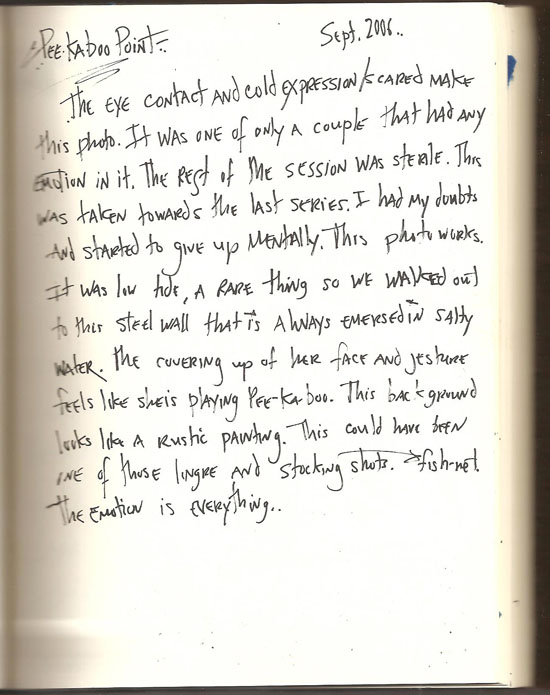 Pee-Ka-boo Point.. Sept. 2006..
The eye contact and cold expression/scared make
this photo. It was one of only a couple that had any
emotion in it. The rest of the session was sterile. This
was taken towards the last series. I had my doubts
and started to give up mentally. This photo works.
It was low tide, a rare thing so we walked out
to this steel wall that is always emersed in salty
water. The covering up of her face and jesture
feels like she is playing Pee-Ka-boo. This background
looks like a rustic painting. This could have been
one of those lingre and stocking shots. → fish-net.
The emotion is everything..